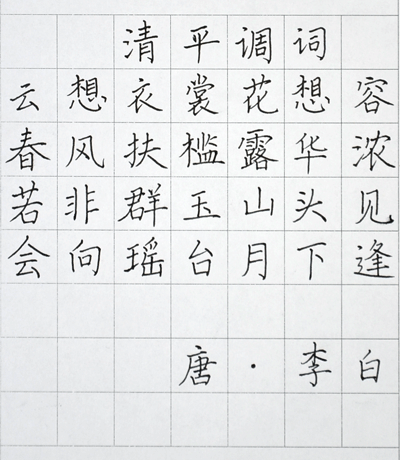 清平调词
云想衣裳花想容
春风扶槛露华浓
若非群玉山头见
会向瑶台月下逢
唐·李白